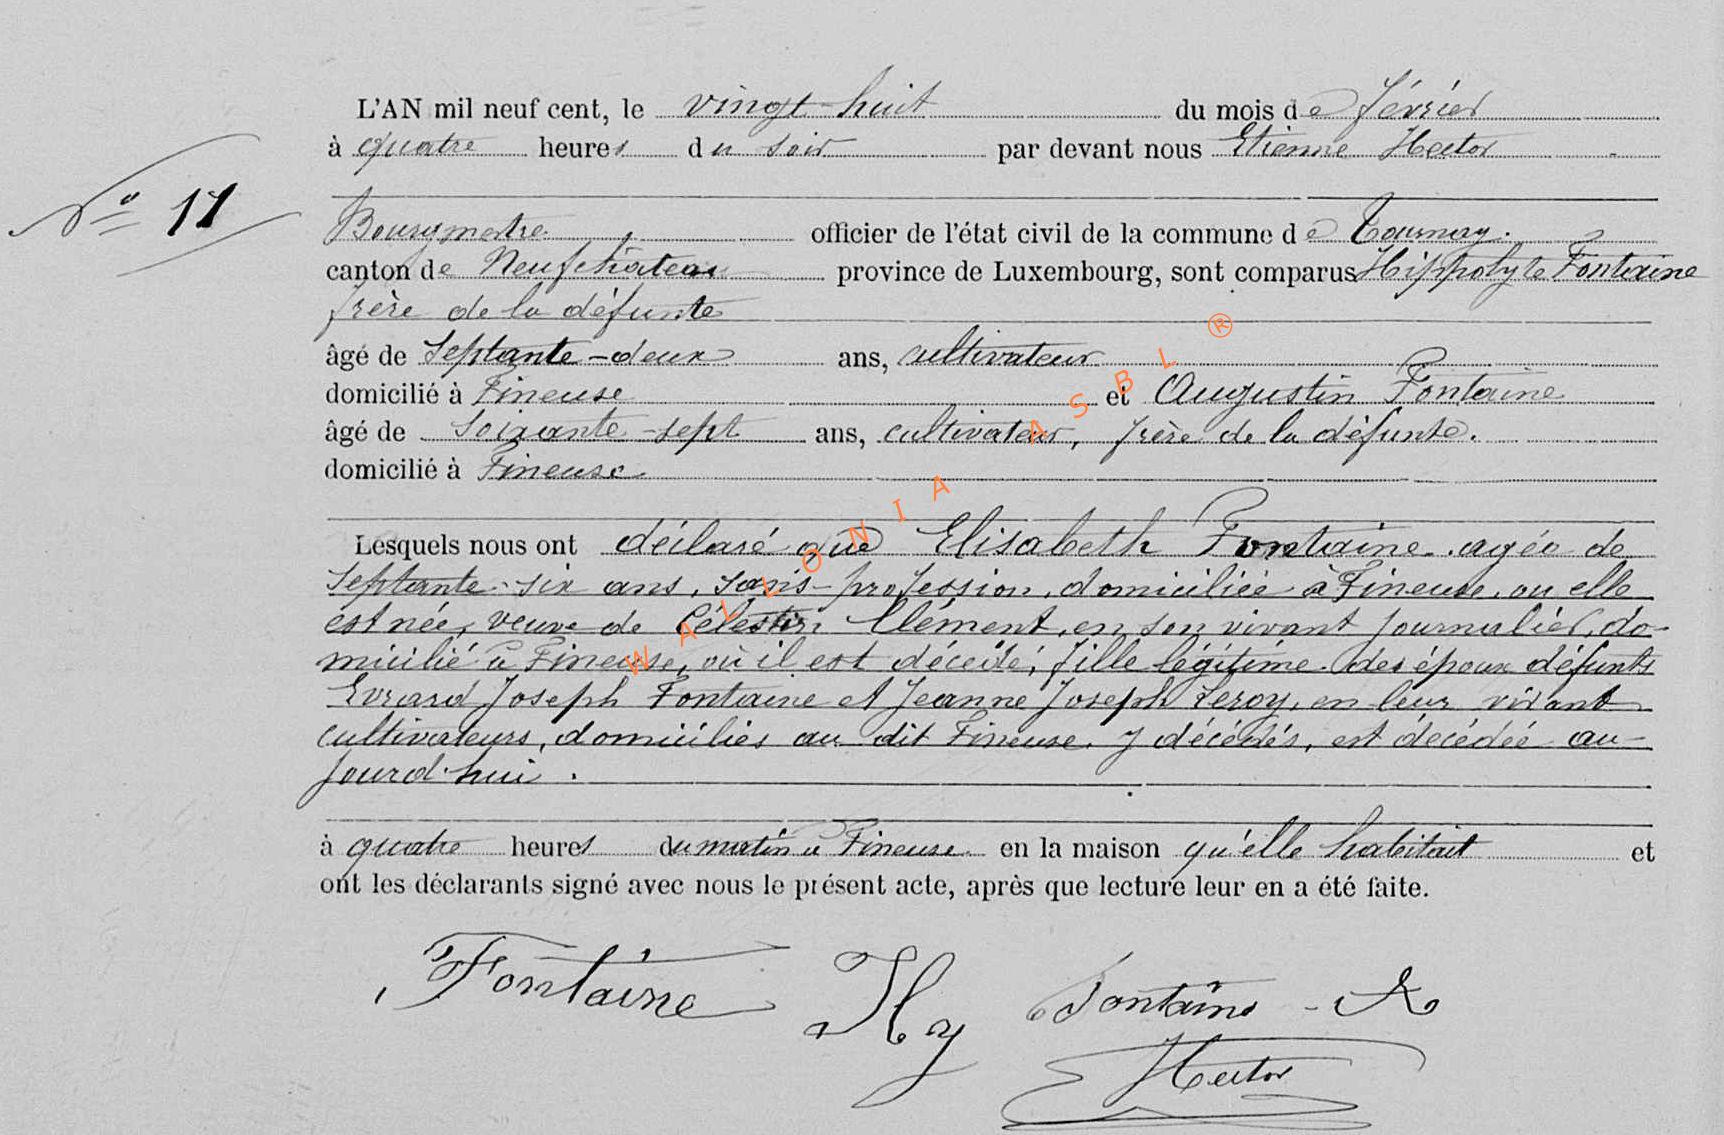 L'AN mil neuf cent, le vingt-huit du mois de février
à quatre heures du soir par devant nous Etienne Hector
N° 11
Bourgmestre officier de l'état civil de la commune de Tournay.
canton de Neufchâteau province de Luxembourg, sont comparus Hippolyte Fontaine
frère de la défunte
âgé de septante-deux ans, cultivateur
domicilié à Fineuse et Augustin Fontaine
âgé de soixante-sept ans, cultivateur, frère de la défunte.
domicilié à Fineuse
Lesquels nous ont déclaré que Elisabeth Fontaine, agée de
septante-six ans, sans profession, domiciliée à Fineuse, ou elle
est née, veuve de Célestin Clément, en son vivant journalier, do-
micilié à Fineuse, où il est décédé, fille légitime des époux défunts
Evrard Joseph Fontaine et Jeanne Joseph Leroy, en leur vivant
cultivateurs, domiciliés au dit Fineuse, y décédés, est décédée au-
jourd'hui.
à quatre heures du matin à Fineuse en la maison qu'elle habitait et
ont les déclarants signé avec nous le présent acte, après que lecture leur en a été faite.
Fontaine Hy Fontaine - A
Hector
WALLONIA ASBL ®